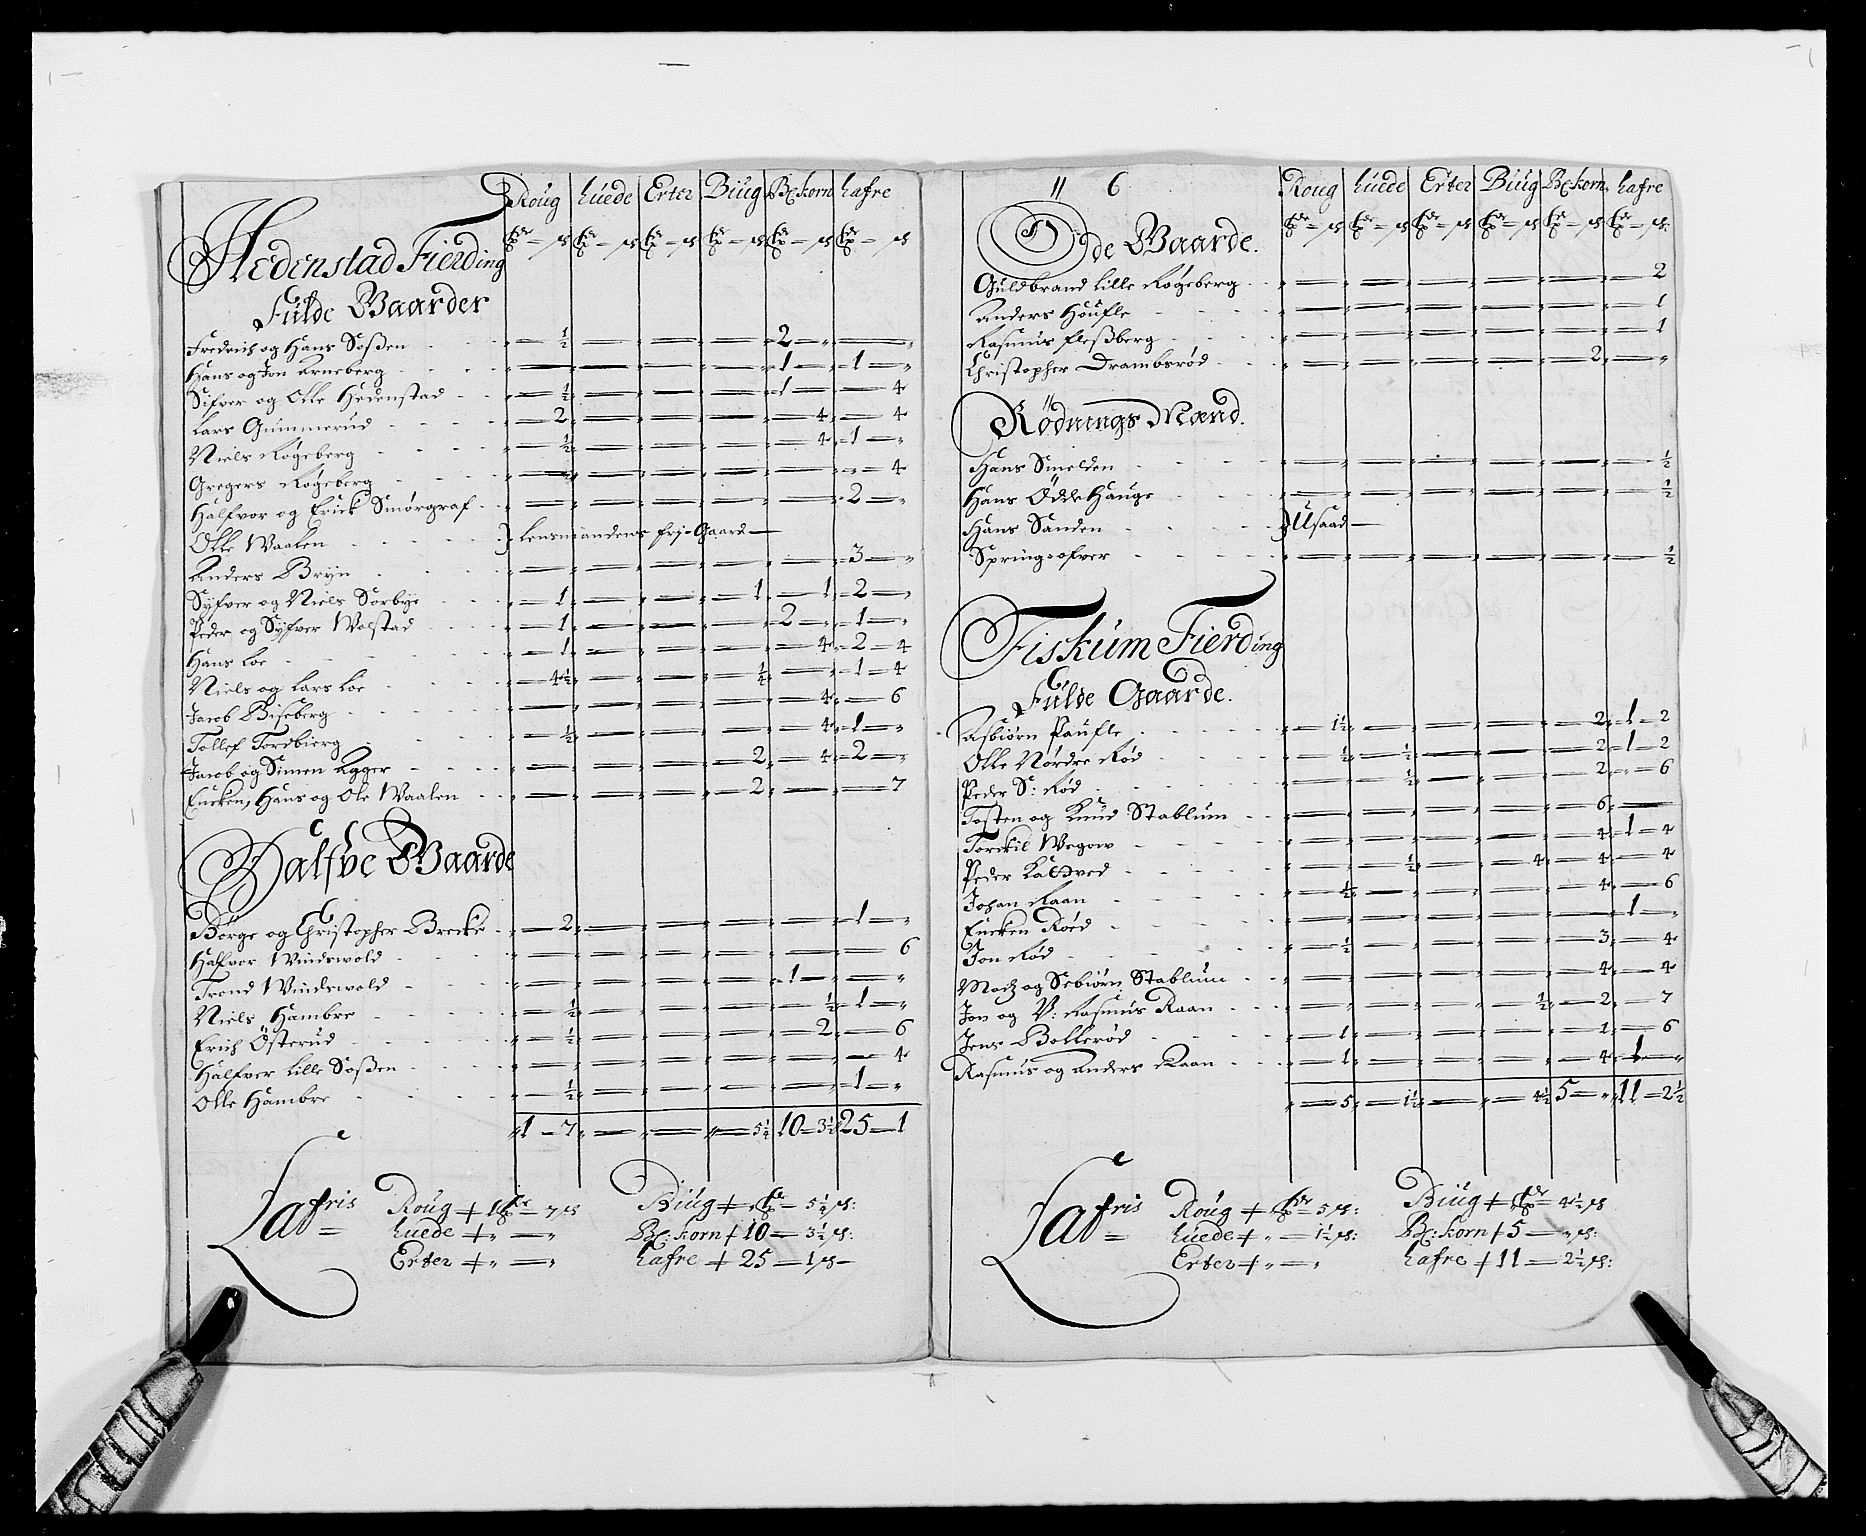 Roug Huede Erter Biug Bl:korn hafre
Hedenstad Fierding
Fulde Gaarder
Fredrich og Hans Soßen — ½ — — — 2 — —
Hans og Jon Arneberg — — — — 1 — 1 —
Sifver og Olle Hedenstad — ½ — — — 1 — — 4
Lars Gummerud — 2 — — — — 4 — 4
Niels Røgeberg — ½ — — — — 4 1 —
Gregers Røgeberg — — — — — — 4
Halfvor og Erick Smørgraf — — — — — 2 —
Olle Waalen } Lensmandens fri-Gaard —
Anders Bryn — — — — — 3 —
Syfver og Niels Sørbye — 1 — — — 1 — 1 2 —
Peder og Syfver Wolstad — 1 — — — 2 — 1 —
Hans Loe — 1 — — — — 4 2 — 4
Niels og Lars Loe — 4½ — — — ¼ — 1 — 4
Jacob Biseberg — — — — — 4 — 6
Tollef Tordbierg — ½ — — — — 4 1 —
Jacob og Simen Agger — — — — 2 — 4 2 —
Eucken, Hans og Ole Waalen — — — — 2 — — 7
Halfve Gaarde
Børge og Christopher Brecke — 2 — — — — 1 —
Halfvor Windswold — — — — — — 6
Trond Windswold — — — — 1 — —
Niels Hambre — ½ — — — — ½ 1 —
Erich Østerud — ½ — — — — 2 — 6
Halfver Lille Soßen — — — — — — 4
Olle Hambre — ½ — — — — 1 —
1 — 7 — — — 5¼ 10 — 3½ 25 — 1
Lafris
Roug + 1 — 7 Biug + — 5¼
Huede + — Bl:korn + 10 — 3½
Erter + — hafre + 25 — 1
6
Roug Huede Erter Biug Bl:korn hafre
Øde Gaarde.
Guldbrand Lille Røgeberg — — — — — — 2
Anders Houfle — — — — — — 1
Rasmus Fleßberg — — — — — — 1
Christopher Drambsrød — — — — — 2 —
Rødnings Mænd.
Hans Smelden — — — — — — ½
Hans Ødde Hauge — — — — — — ½
Hans Sanden } Usaad —
Spring-ofver — — — — — — ½
Fiskum Fierding
Fulde Gaarde.
Asbiørn Paufle — 1½ — — — — 2 1 — 2
Olle Nordre Rød — ½ — ½ — — — 2 1 — 2
Peder S: Rød — — ½ — — — 2 — 6
Tosten og Knud Stablum — — — — — 6 —
Torckil Wegow — — — — — 4 1 — 4
Peder Kaldved — — ½ — — 4 — 4 — 4
Johan Raan — ½ — — — — 4 — 6
Eucken Roed — — — — — 1 —
Jon Rød — ½ — — — — 3 — 4
Madz og Sebiørn Stablum — — — — — 4 — 4
Jon og V: Rasmus Raan — — — — ½ — 2 — 7
Jens Bollerød — 1 — — — — 1 — 6
Rasmus og Anders Raan — 1 — — — — 4 1 —
— 5 — 1½ — — 4½ 5 — 11 — 2½
Lafris
Roug + — 5 Biug + — 4½
Huede + — 1½ Bl:korn + 5 —
Erter + — hafre + 11 — 2½